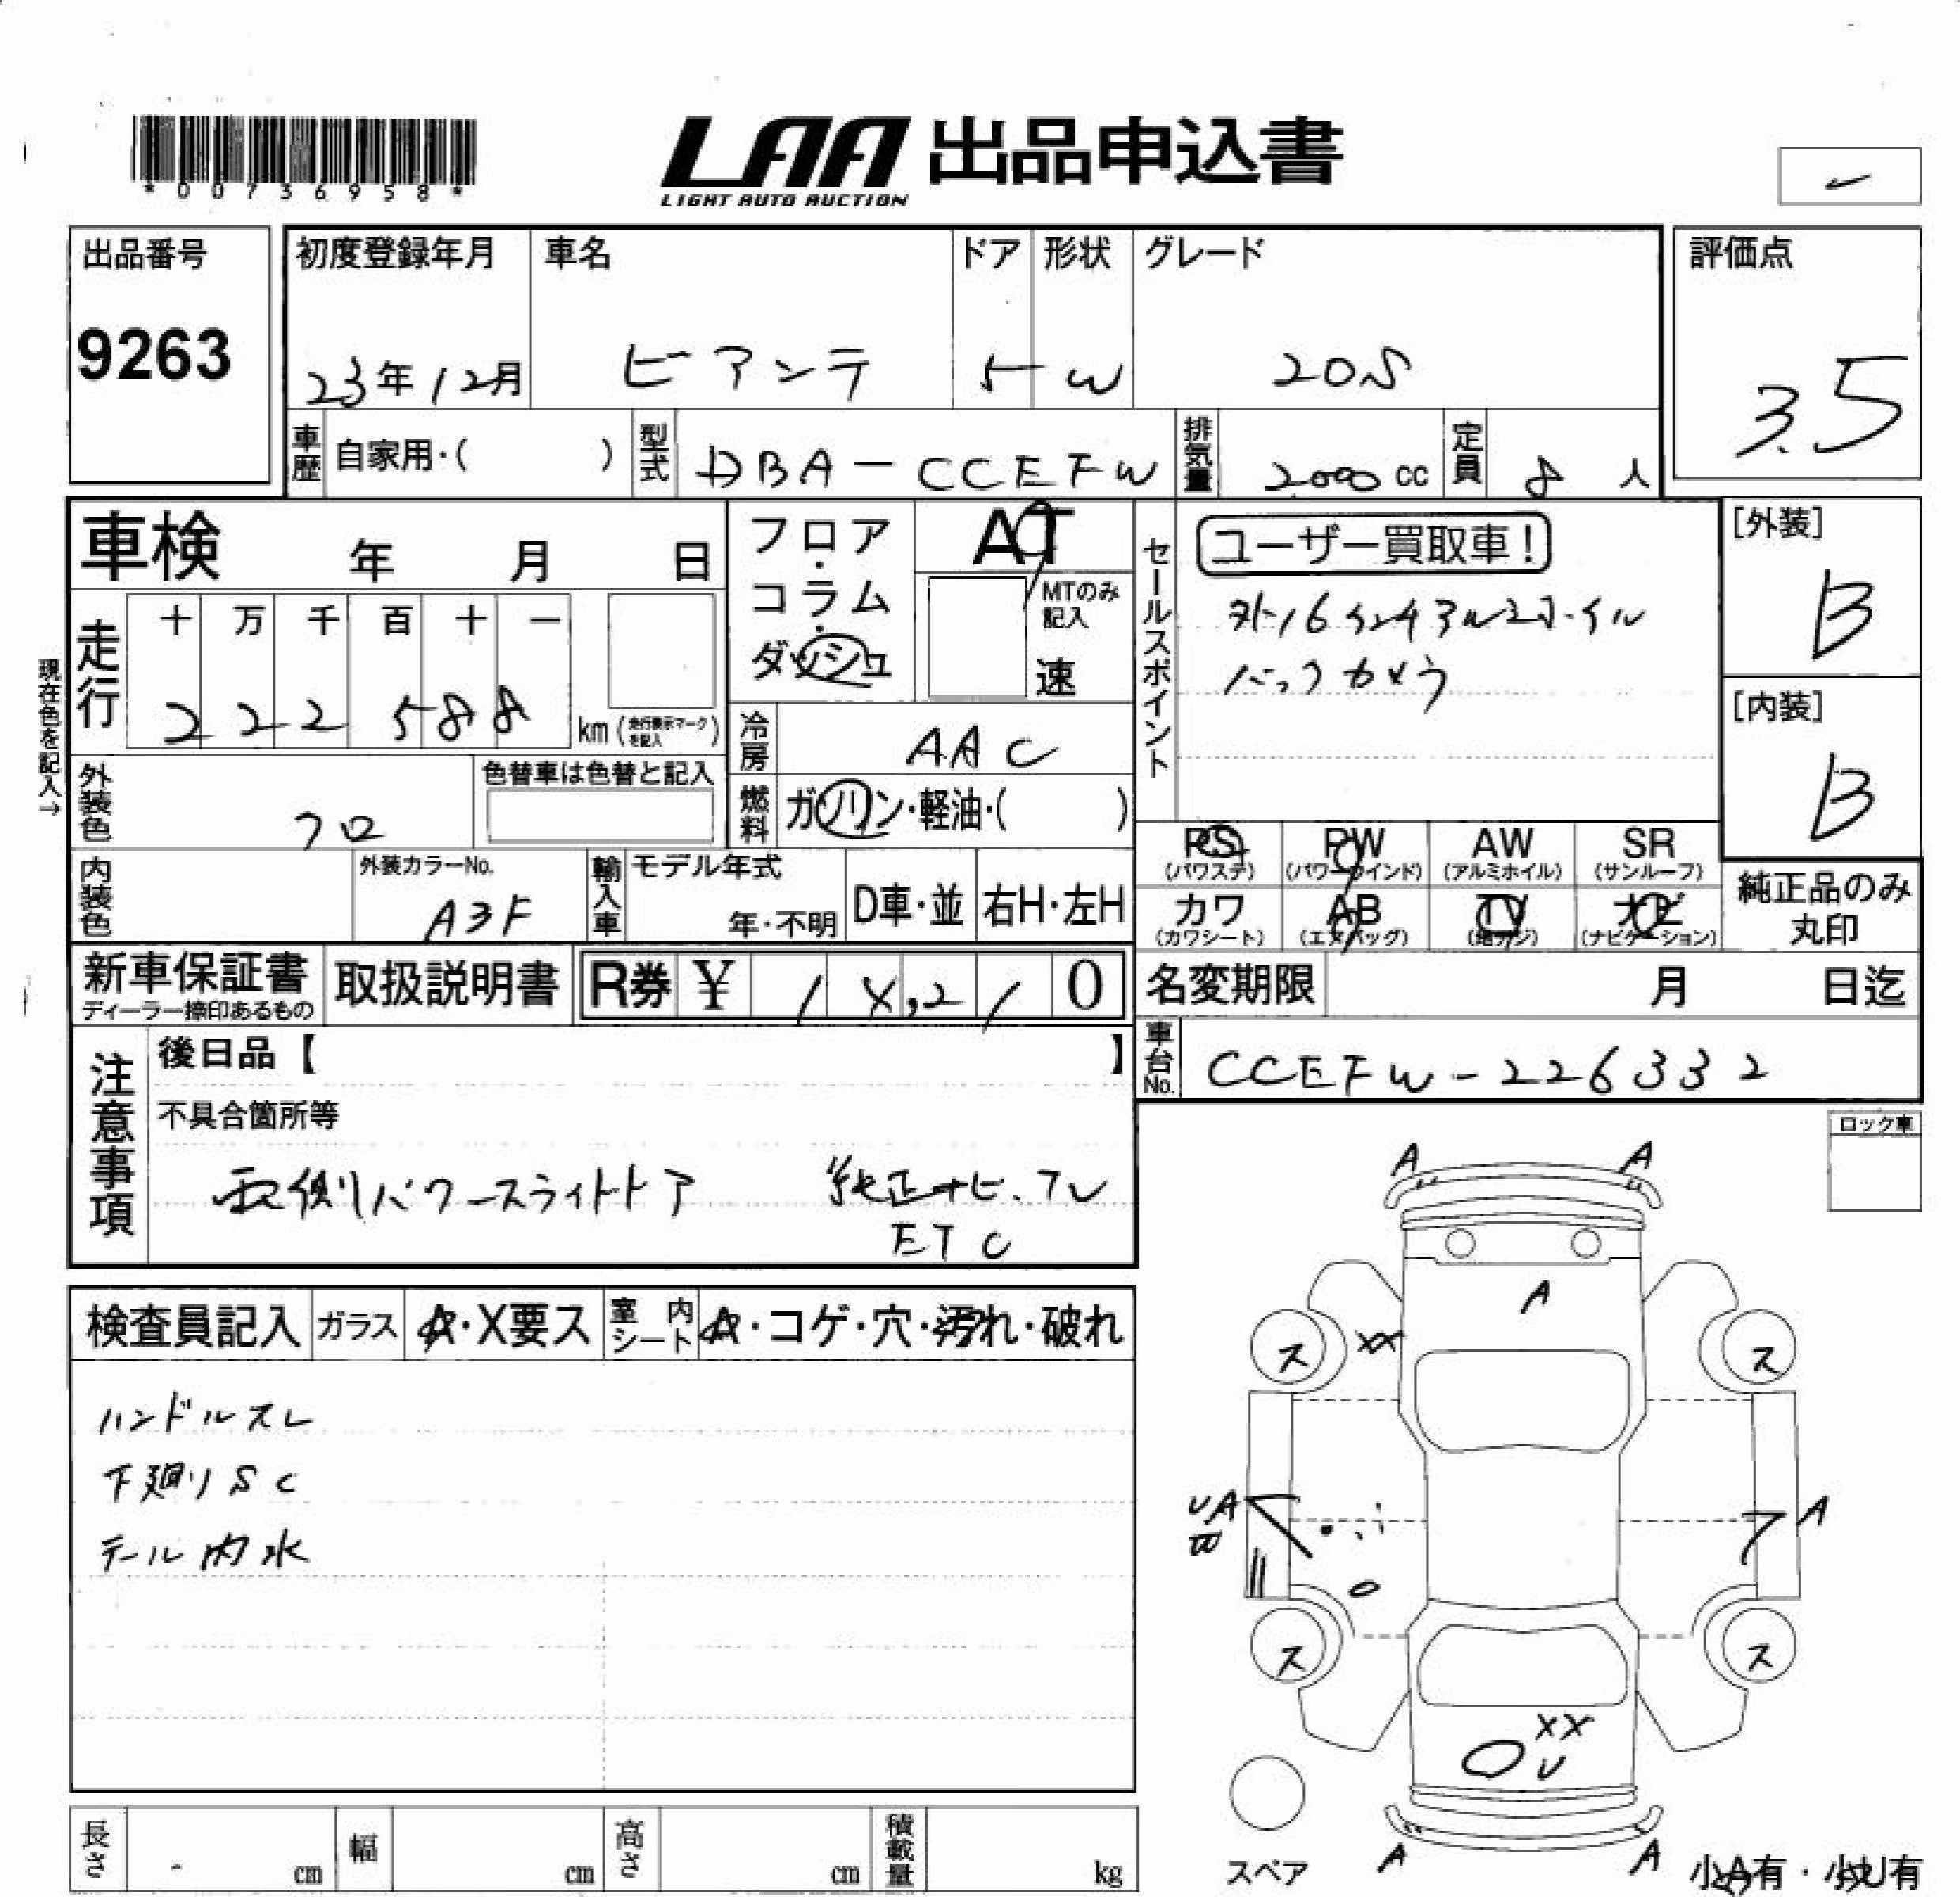 *00736958*
LAA 出品申込書
LIGHT AUTO AUCTION
出品番号
9263
初度登録年月
23年12月
車名
ビアンテ
ドア
5
形状
W
グレード
20S
評価点
3.5
車歴
自家用・( )
型式
DBA-CCEFW
排気量
2000 cc
定員
8 人
車検 年 月 日
フロア・コラム・ダッシュ
AT
MTのみ記入
速
セールスポイント
ユーザー買取車!
外16インチアルミホイル
バックカメラ
[外装]
B
[内装]
B
現在色を記入→
走行
十 万 千 百 十 一
2 2 2 5 8 8
km (走行表示マークを記入)
冷房
AAC
外装色
クロ
色替車は色替と記入
燃料
ガソリン・軽油・( )
PS (パワステ)
PW (パワーウインド)
AW (アルミホイル)
SR (サンルーフ)
カワ (カワシート)
AB (エアバッグ)
TV (地デジ)
ナビ (ナビゲーション)
純正品のみ丸印
内装色
外装カラーNo.
A3F
輸入車
モデル年式
年・不明
D車・並
右H・左H
新車保証書
ディーラー捺印あるもの
取扱説明書
R券 ¥ 1 0
名変期限 月 日迄
車台No.
CCEFW-226332
注意事項
後日品【 】
不具合箇所等
両側パワースライドドア 純正ナビ、TV
ETC
ロック車
検査員記入
ガラス
A・X要ス
室内シート
A・コゲ・穴・汚れ・破れ
ハンドルスレ
下廻りSC
テール内水
A A
A
ス XX ス
UA A
B
ス ス
XX
U
A A
スペア
小A有・小U有
長さ cm
幅 cm
高さ cm
積載量 kg